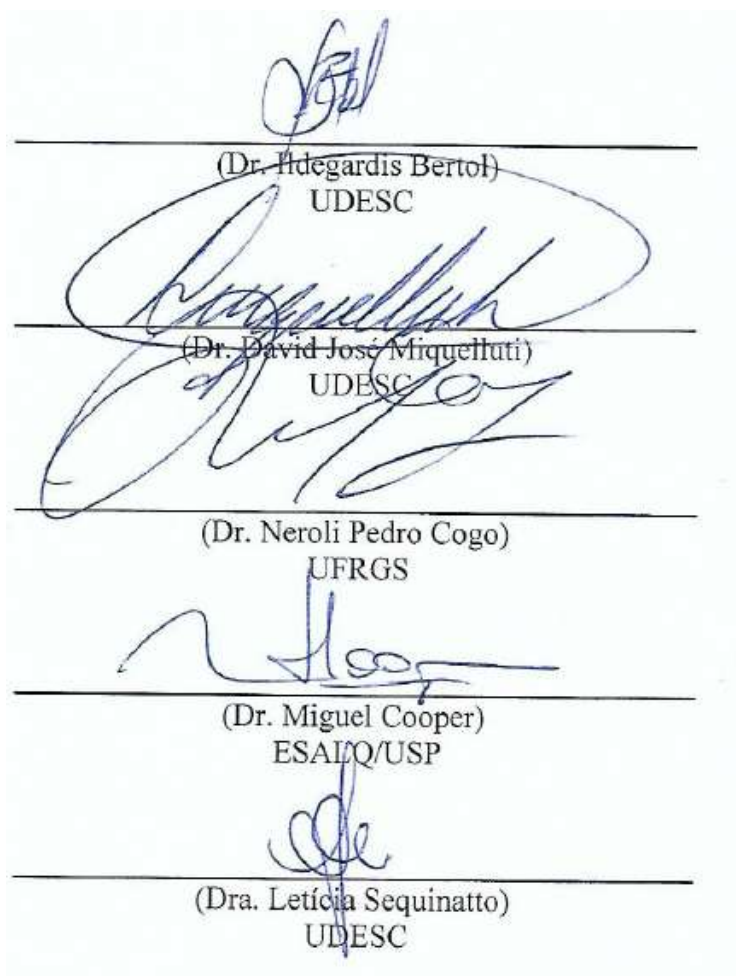 (Dr. Ildegardis Bertol)
UDESC
(Dr. David José Miquelluti)
UDESC
(Dr. Neroli Pedro Cogo)
UFRGS
(Dr. Miguel Cooper)
ESALQ/USP
(Dra. Letícia Sequinatto)
UDESC